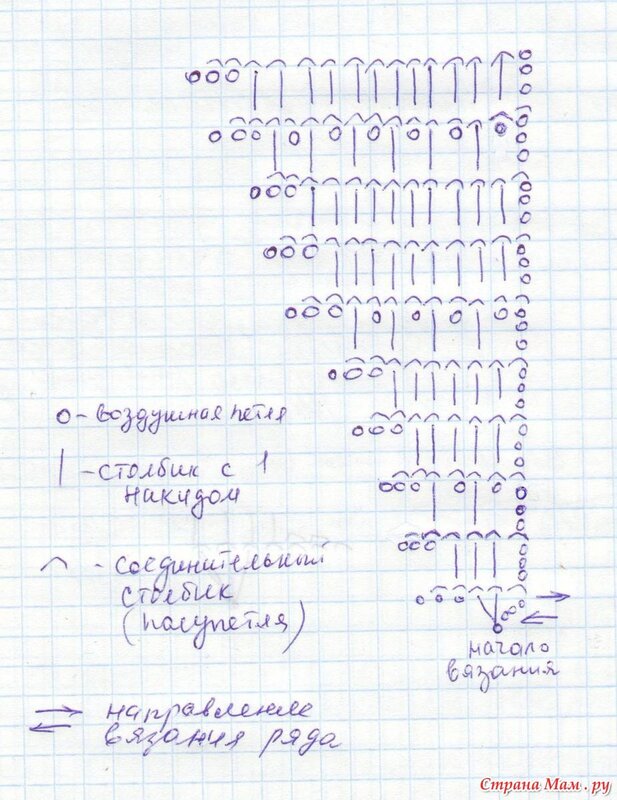 о - воздушная петля
| - столбик с 1
накидом
⌒ - соединительный
столбик
(полупетля)
начало
вязания
направление
вязания ряда
Страна Мам.ру